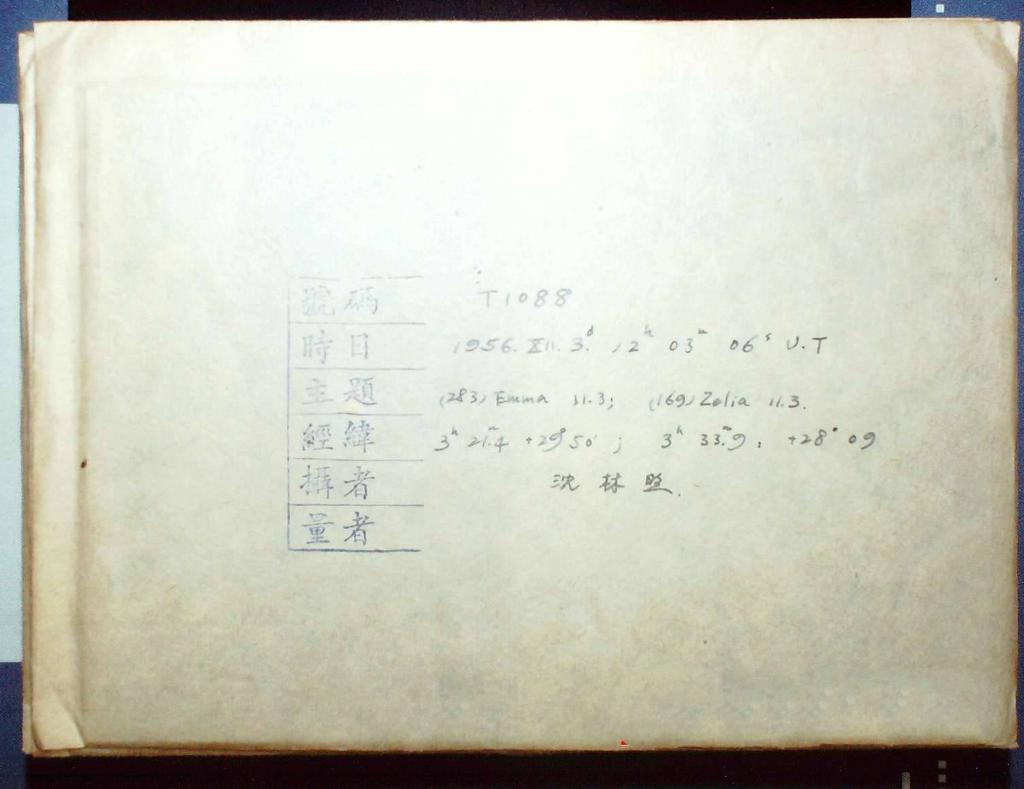 號碼 T1088
時日 1956. XII. 3.ᵈ 12ʰ 03ᵐ 06ˢ U.T
主題 (283) Emma 11.3; (169) Zelia 11.3.
經緯 3ʰ 21.ᵐ4 +29°50′; 3ʰ 33.ᵐ9, +28°09
攝者 沈林照.
量者